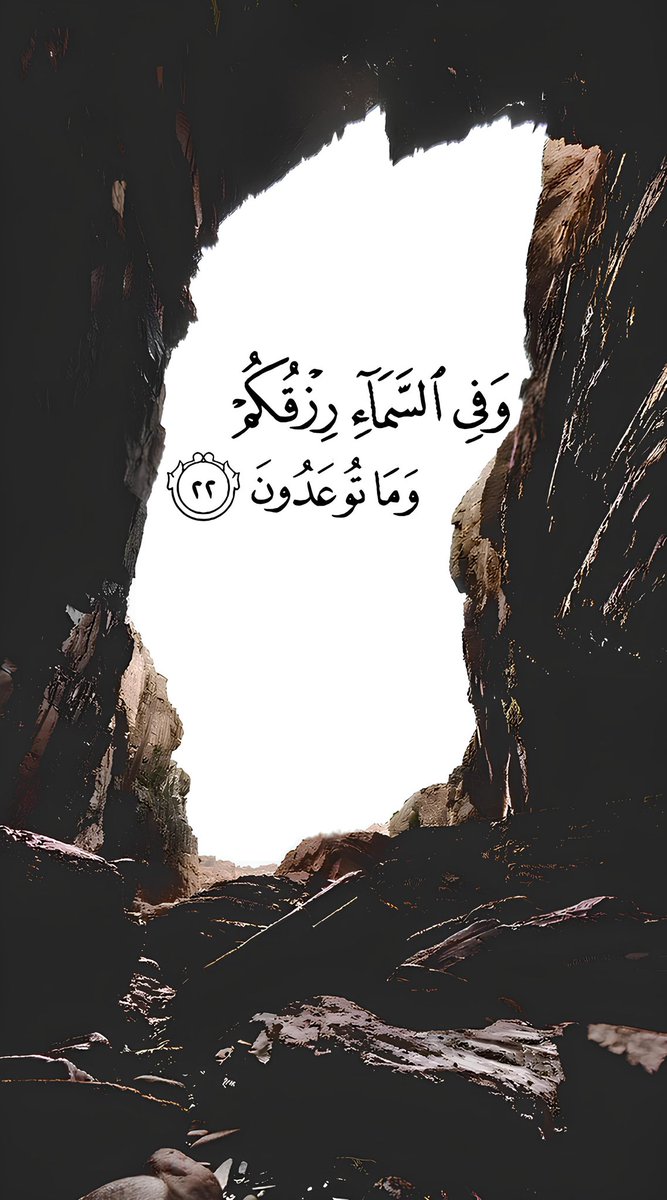 وَفِي ٱلسَّمَآءِ رِزْقُكُمْ
وَمَا تُوعَدُونَ ٢٢